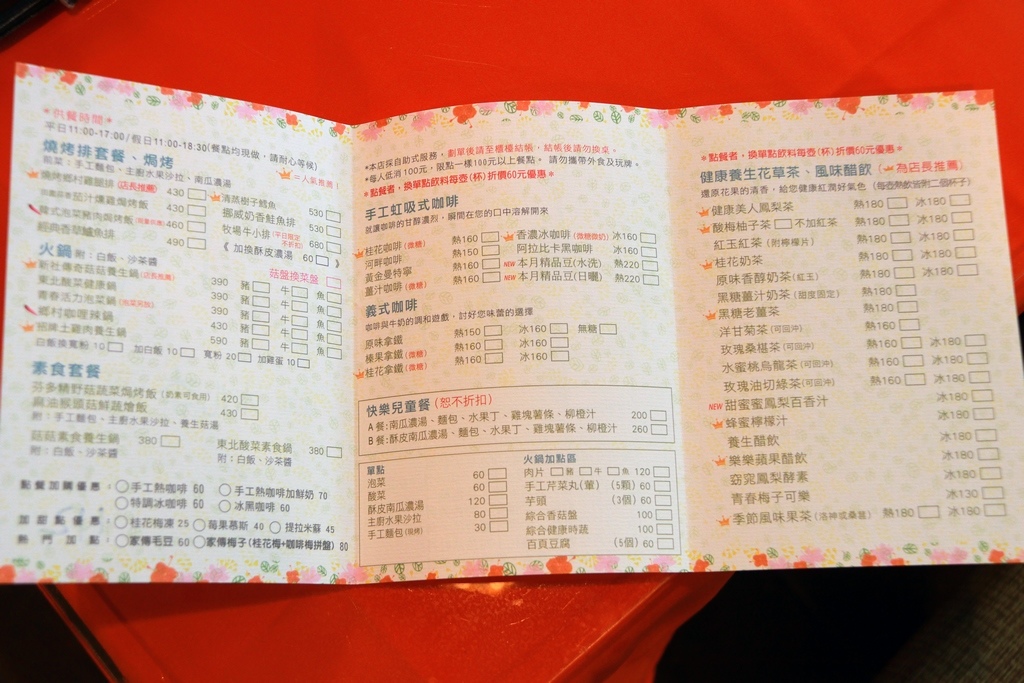 *供餐時間*
平日11:00-17:00/假日11:00-18:30(餐點均現做，請耐心等候)
燒烤排套餐、焗烤
=人氣推薦!
附菜：手工麵包、主廚水果沙拉、南瓜濃湯
燒烤鄉村雞腿排(店長推薦) 430
430
460
經典香草鱸魚排 490
清蒸樹子鱈魚 530
挪威奶香鮭魚排 530
牧場牛小排 680
《加換酥皮濃湯 60 》
火鍋 附：白飯、沙茶醬
菇盤換菜盤
新社傳奇菇菇養生鍋(店長推薦) 390 豬 牛 魚
東北酸菜健康鍋 390 豬 牛 魚
青春活力泡菜鍋 390 豬 牛 魚
鄉村咖哩辣鍋 430 豬 牛 魚
招牌土雞肉養生鍋 590 豬 牛 魚
白飯換寬粉 10 加白飯 10 寬粉 20 加雞蛋 10
素食套餐
芬多精野菇蔬菜焗烤飯(奶素可食用) 420
麻油猴頭菇鮮蔬燴飯 430
附：手工麵包、主廚水果沙拉、養生菇湯
菇菇素食養生鍋 380
附：白飯、沙茶醬
東北酸菜素食鍋 380
附：白飯、沙茶醬
點餐加購優惠： 手工熱咖啡 60 手工熱咖啡加鮮奶 70
特調冰咖啡 60 冰黑咖啡 60
加甜點優惠： 桂花梅凍 25 莓果慕斯 40 提拉米蘇 45
熱門加點： 家傳毛豆 60 家傳梅子(桂花梅+咖啡梅拼盤) 80
*本店採自助式服務，劃單後請至櫃檯結帳，結帳後請勿換桌。
*每人低消100元，限點一樣100元以上餐點。請勿攜帶外食及玩牌。
*點餐者，換單點飲料每壺(杯)折價60元優惠*
手工虹吸式咖啡
就讓咖啡的甘醇濃烈，瞬間在您的口中溶解開來
桂花咖啡(微糖) 熱160
河畔咖啡 熱150
黃金曼特寧 熱160
薑汁咖啡(微糖) 熱160
香濃冰咖啡(微糖微奶) 冰160
阿拉比卡黑咖啡 冰160
NEW 本月精品豆(水洗) 熱220
NEW 本月精品豆(日曬) 熱220
義式咖啡
咖啡與牛奶的調和遊戲，討好您味蕾的選擇
原味拿鐵 熱150 冰160 無糖
榛果拿鐵(微糖) 熱160 冰160
桂花拿鐵(微糖) 熱160 冰160
快樂兒童餐(恕不折扣)
A餐:南瓜濃湯、麵包、水果丁、雞塊薯條、柳橙汁 200
B餐:酥皮南瓜濃湯、麵包、水果丁、雞塊薯條、柳橙汁 260
單點
泡菜 60
酸菜 60
酥皮南瓜濃湯 120
主廚水果沙拉 80
手工麵包 30
火鍋加點區
肉片 豬 牛 魚 120
手工芹菜丸(葷) (5顆) 60
芋頭 (3個) 60
綜合香菇盤 100
綜合健康時蔬 100
百頁豆腐 (5個) 60
*點餐者，換單點飲料每壺(杯)折價60元優惠*
健康養生花草茶、風味醋飲(為店長推薦)
還原花果的清香，給您健康紅潤好氣色 (每壺熱飲皆附二個杯子)
健康美人鳳梨茶 熱180 冰180
酸梅柚子茶 不加紅茶 熱180 冰180
紅玉紅茶(附檸檬片) 熱180 冰180
桂花奶茶 熱180 冰180
原味香醇奶茶(紅玉) 熱180 冰180
黑糖薑汁奶茶(甜度固定) 熱180
黑糖老薑茶 熱180
洋甘菊茶(可回沖) 熱160
玫瑰桑椹茶(可回沖) 熱160 冰180
水蜜桃烏龍茶(可回沖) 熱160 冰180
玫瑰油切綠茶(可回沖) 熱160 冰180
NEW 甜蜜蜜鳳梨百香汁 冰180
蜂蜜檸檬汁 冰180
養生醋飲 冰180
樂樂蘋果醋飲 冰180
窈窕鳳梨酵素 冰180
青春梅子可樂 冰130
季節風味果茶(洛神或桑葚) 熱180 冰180